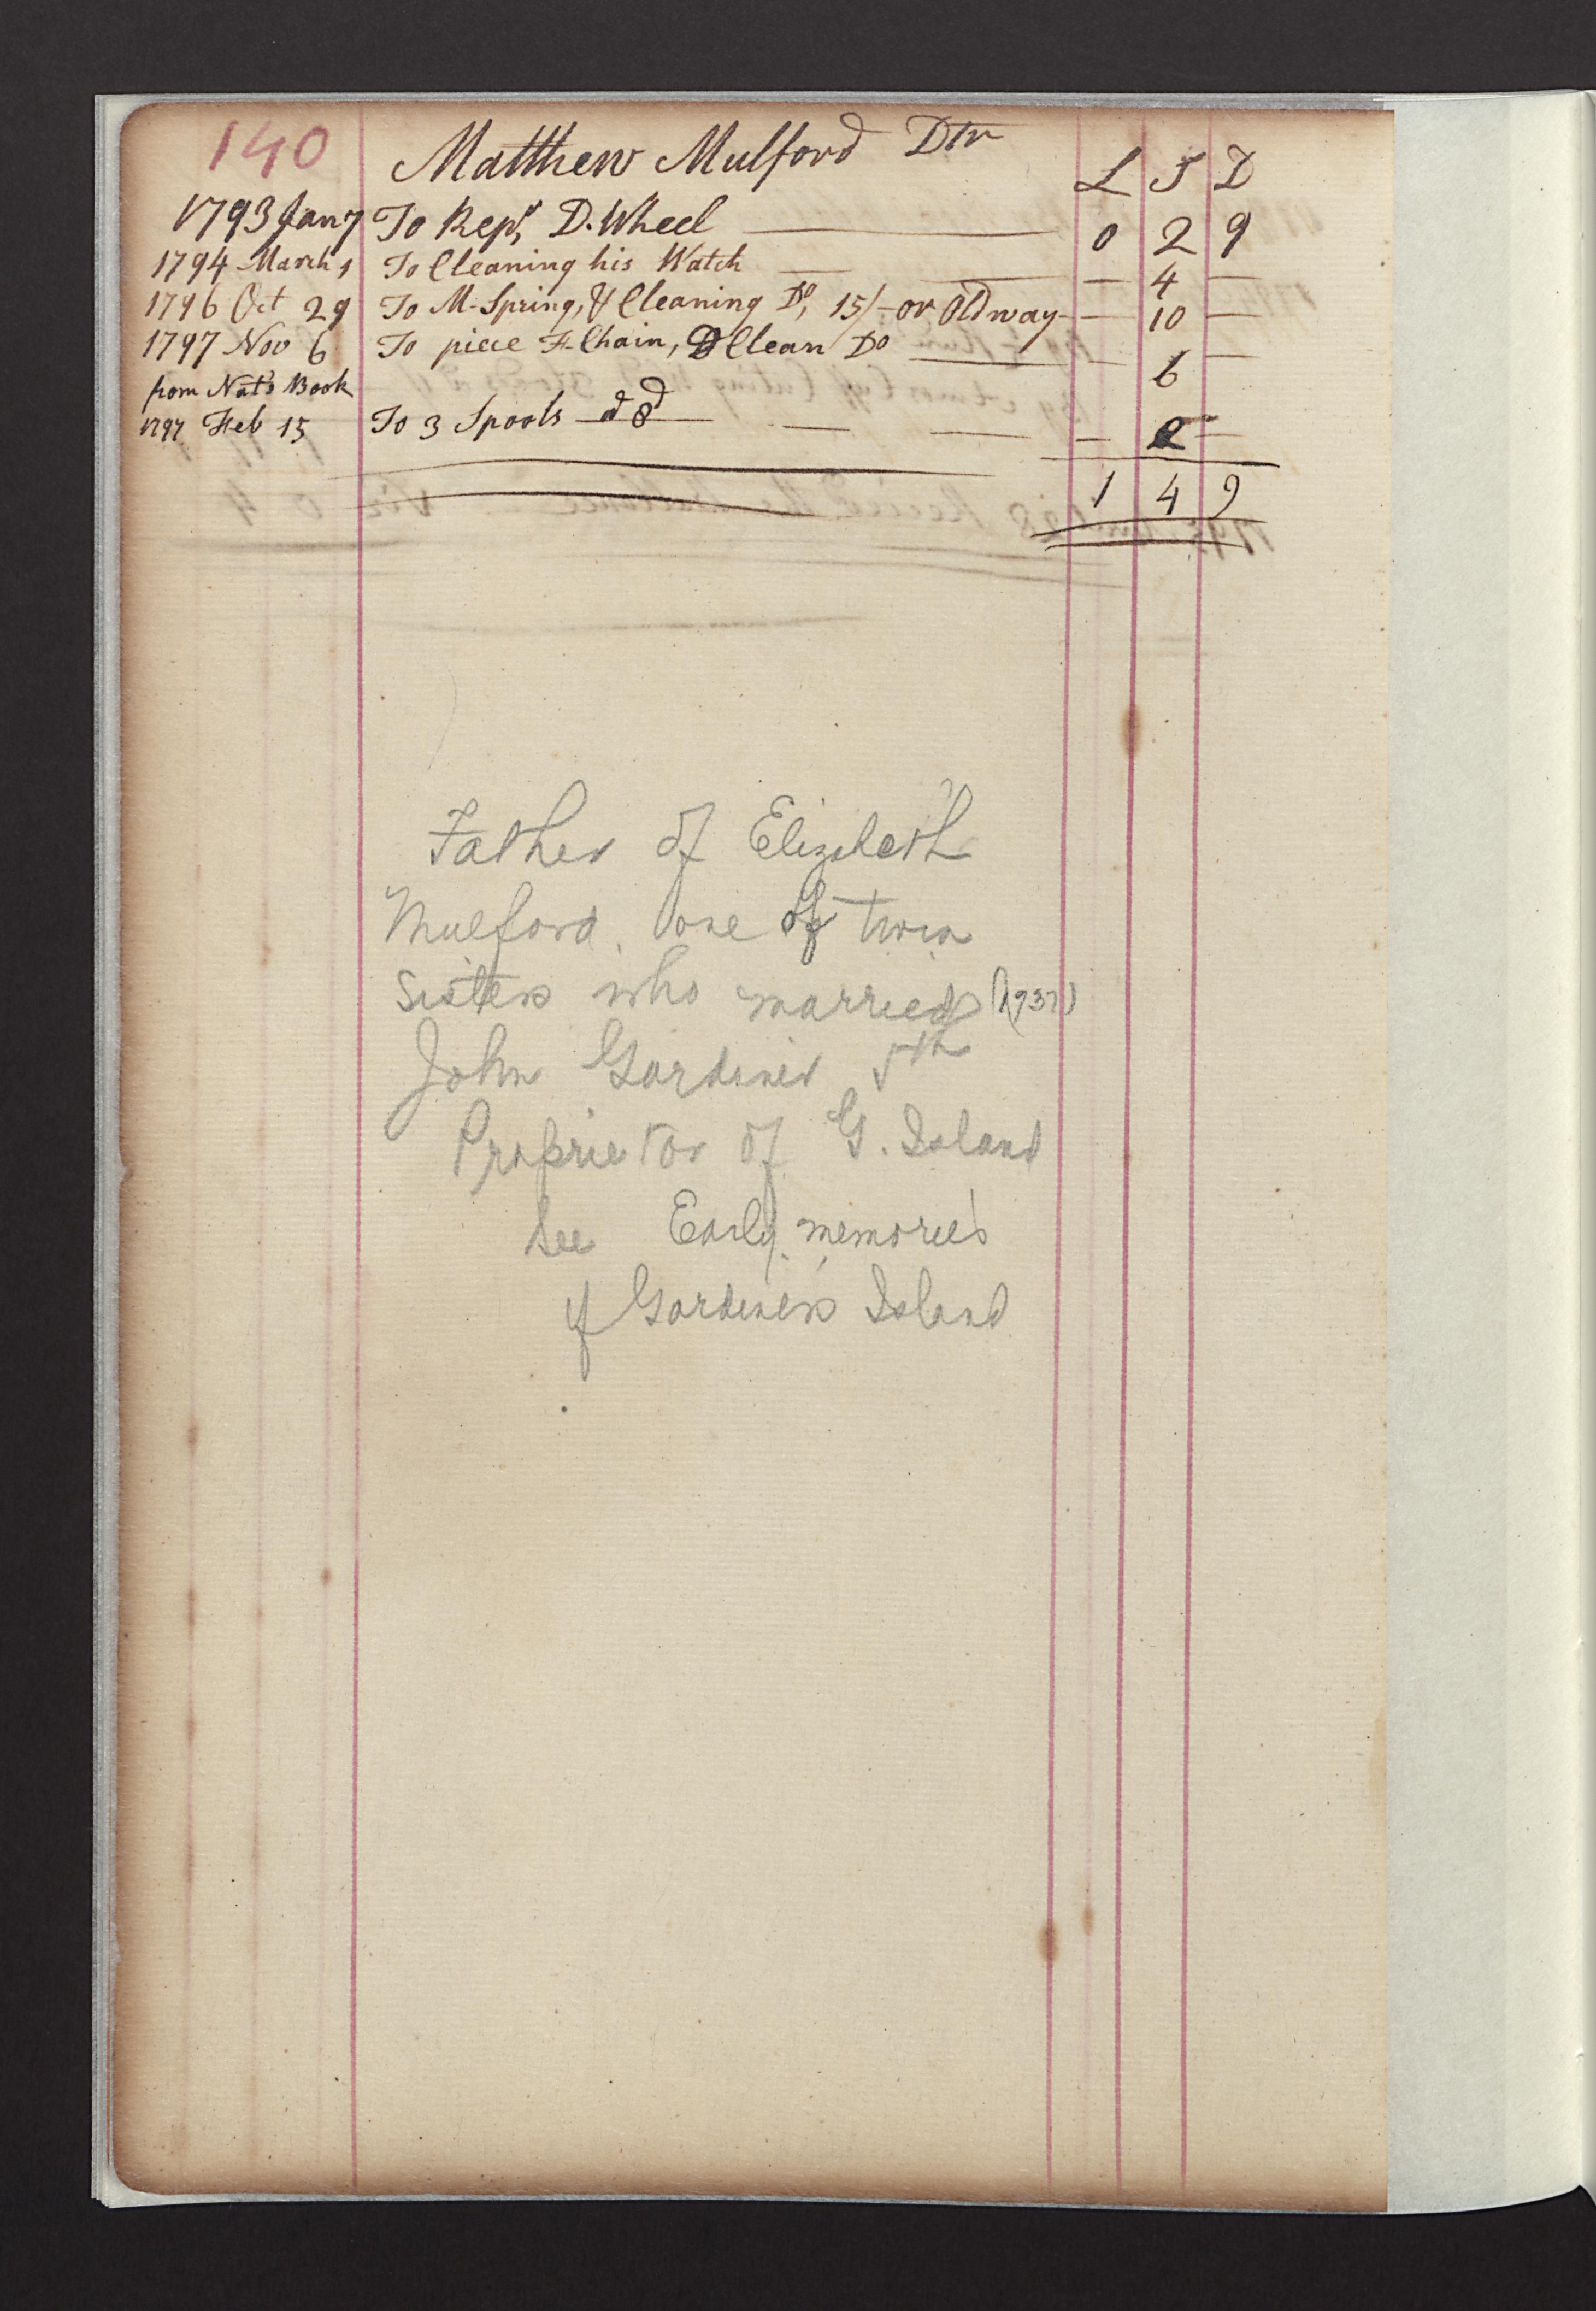 140 Matthew Mulford Dtr
L S D
1793 Jan 7 To Repg D. Wheel 0 2 9
1794 March 1 To Cleaning his Watch — 4 —
1796 Oct 29 To M-Spring, & Cleaning Do, 15/- or Old way — 10 —
1797 Nov 6 To piece F-Chain, & Clean Do — 6 —
from Nat's Book
1797 Feb 15 To 3 Spools d 8d — 2 —
1 4 9
Father of Elizabeth
Mulford, one of twin
sisters who married
John Gardiner 5th
Proprietor of G. Island
See Early memories
of Gardiners Island